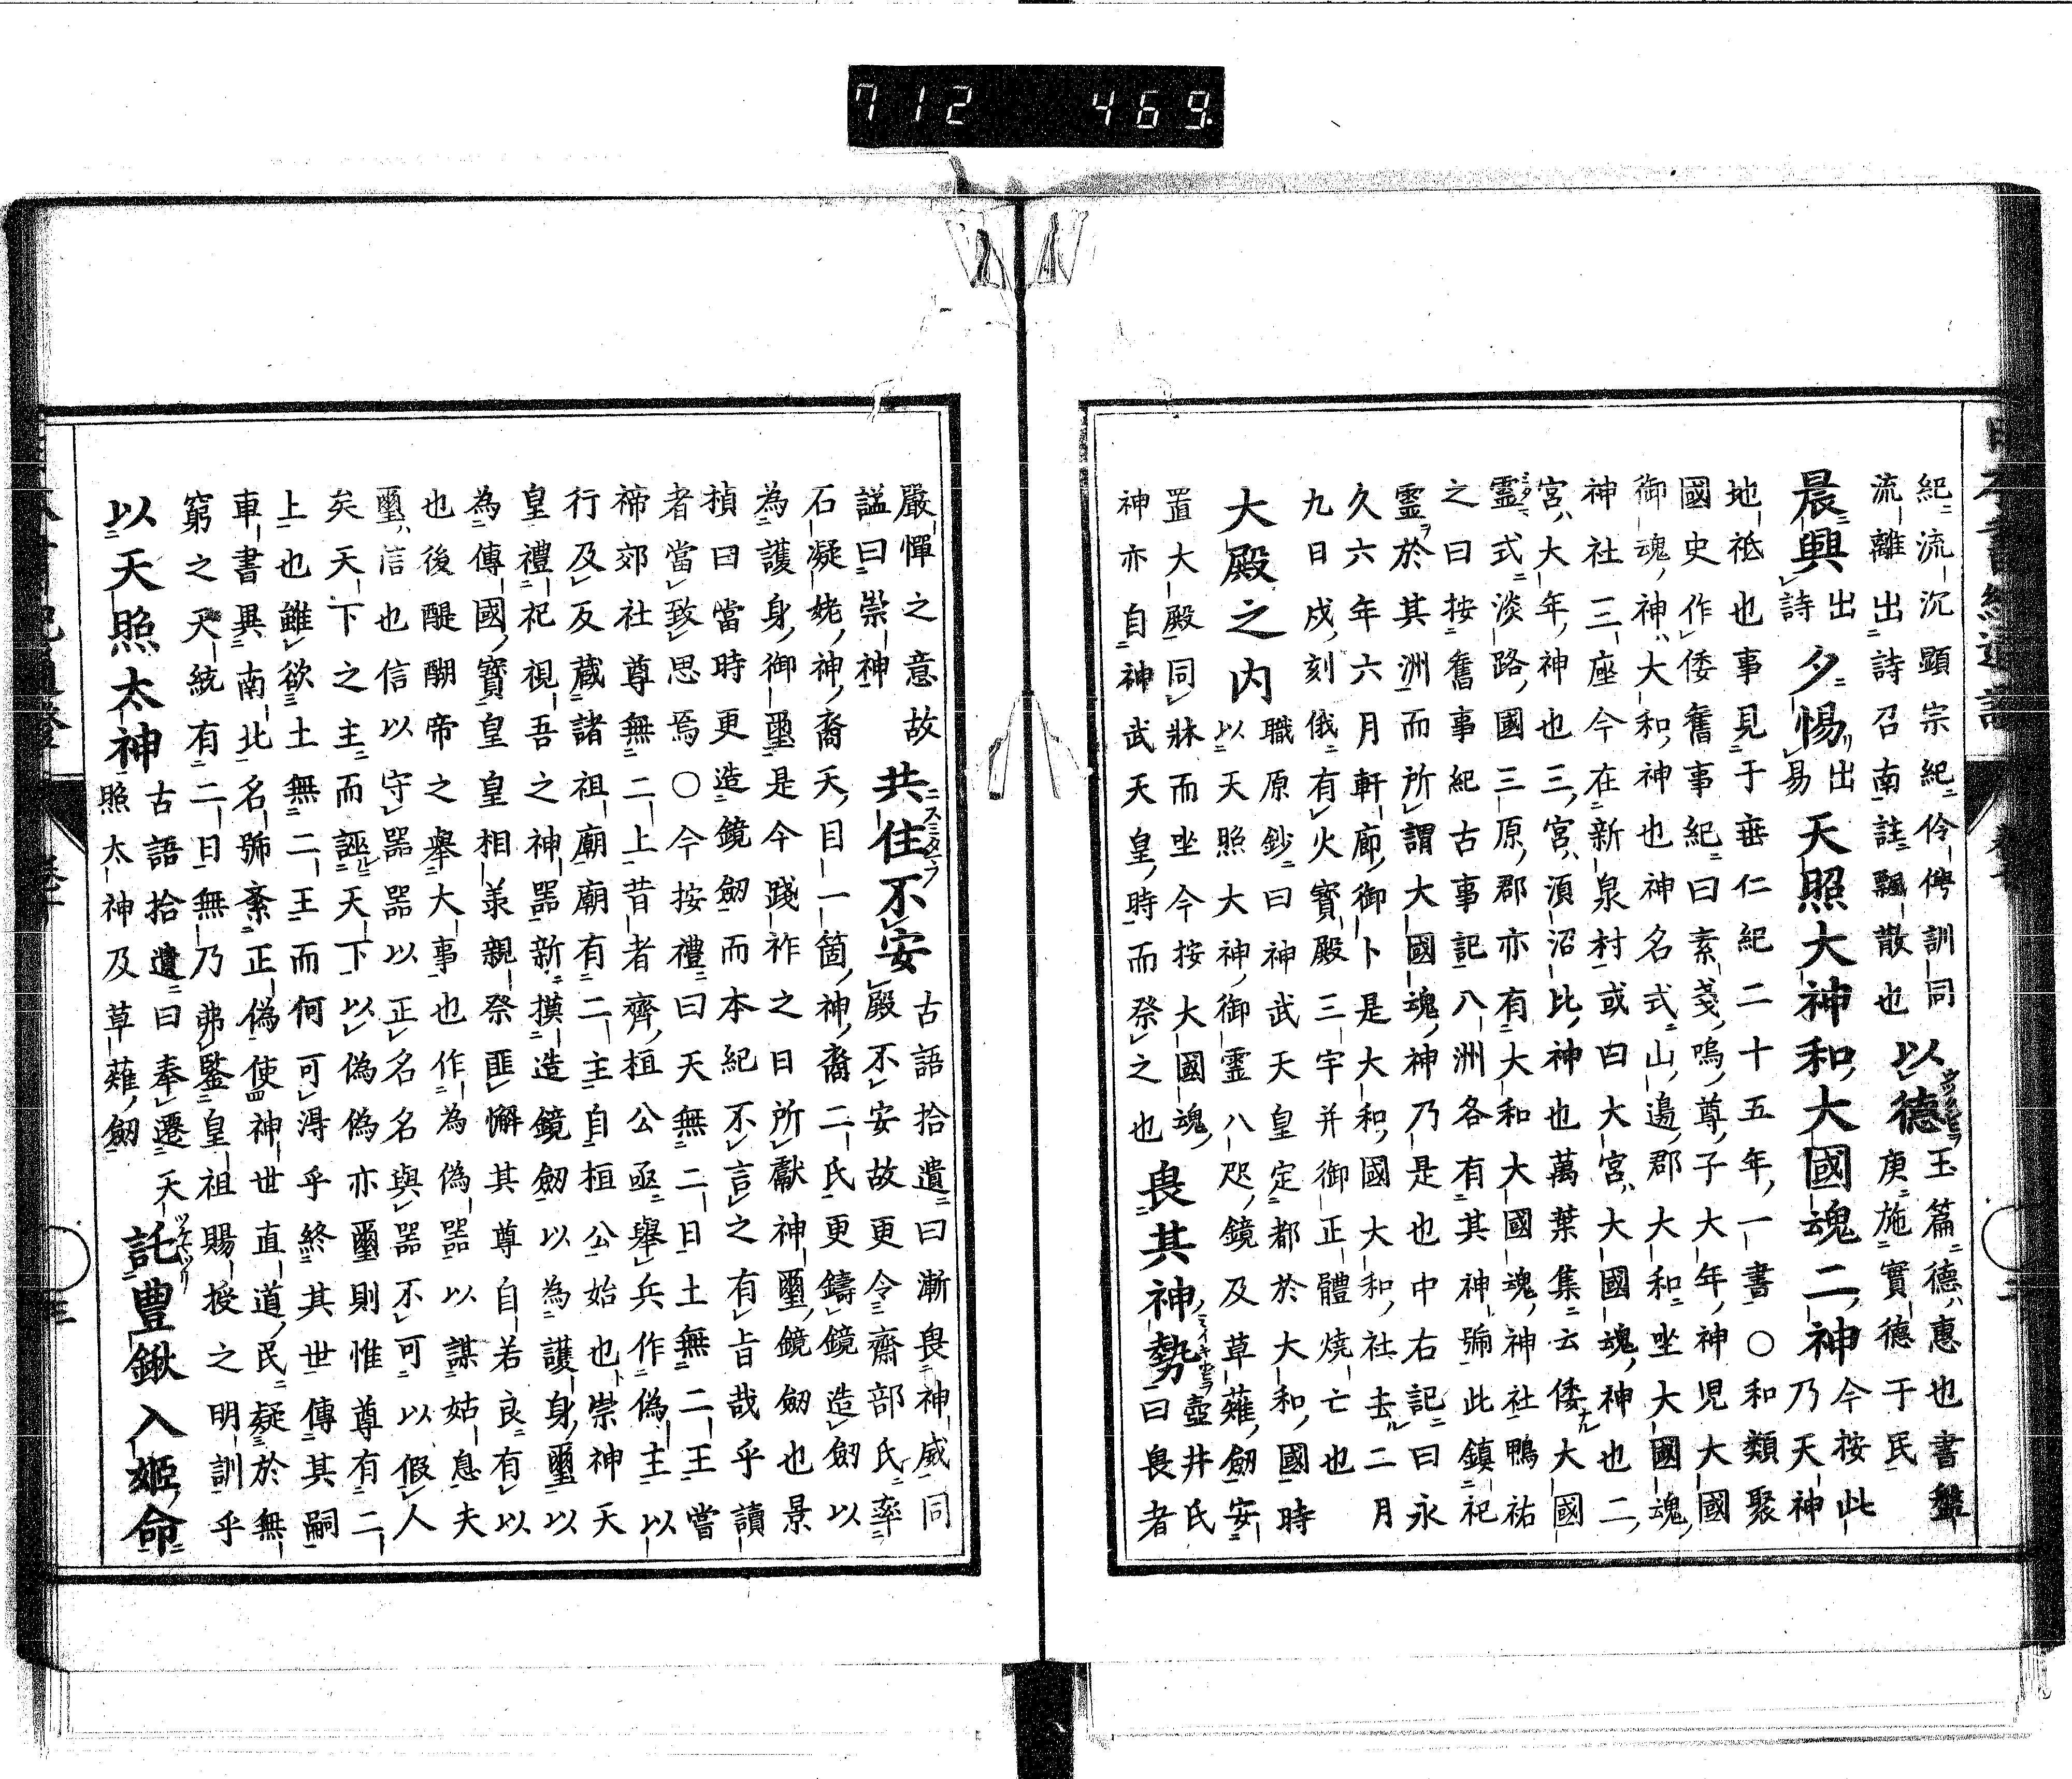 712 469
紀流沉顯宗紀伶俜訓同
流離出詩召南註飄散也
以德
玉篇德惠也書盤
庚施實德于民
晨興
出
詩
夕惕
出
易
天照大神和大國魂二神
今按此
乃天神
地祇也事見于垂仁紀二十五年一書○和類聚
國史作倭舊事紀曰素戔嗚尊子大年神児大國
御魂神大和神也神名式山邊郡大和坐大國魂
神社三座今在新泉村或曰大宮大國魂神也二
宮大年神也三宮湏沼比神也萬葉集云倭大國
霊式淡路國三原郡亦有大和大國魂神社鴨祐
之曰按舊事紀古事記八洲各有其神號此鎮祀
霊於其洲而所謂大國魂神乃是也中右記曰永
久六年六月軒廊御卜是大和國大和社去二月
九日戍刻俄有火寳殿三宇并御正體燒亡也
大殿之内
職原鈔曰神武天皇定都於大和國時
以天照大神御霊八咫鏡及草薙劔安
置大殿同牀而坐今按大國魂
神亦自神武天皇時而祭之也
畏其神勢
壺井氏
曰畏者
嚴憚之意故
謚曰崇神
共住不安
古語拾遺曰漸畏神威同
殿不安故更令齋部氏率
石凝姥神裔天目一箇神裔二氏更鑄鏡造劔以
為護身御璽是今踐祚之日所獻神璽鏡劔也景
楨曰當時更造鏡劔而本紀不言之有旨哉乎讀
者當致思焉○今按禮曰天無二日土無二王嘗
禘郊社尊無二上昔者齊桓公亟舉兵作偽主以
行及反藏諸祖廟廟有二主自桓公始也崇神天
皇禮祀視吾之神噐新摸造鏡劔以為護身璽以
為傳國寳皇皇相羕親祭匪懈其尊自若良有以
也後醍醐帝之舉大事也作為偽噐以謀姑息夫
璽信也信以守噐噐以正名名與噐不可以假人
矣天下之主而誣天下以偽偽亦璽則惟尊有二
上也雖欲土無二王而何可淂乎終其世傳其嗣
車書異南北名號紊正偽使神世直道民疑於無
窮之天統有二日無乃弗鑒皇祖賜授之明訓乎
以天照太神
古語拾遺曰奉遷天
照太神及草薙劔
託豊鍬入姫命